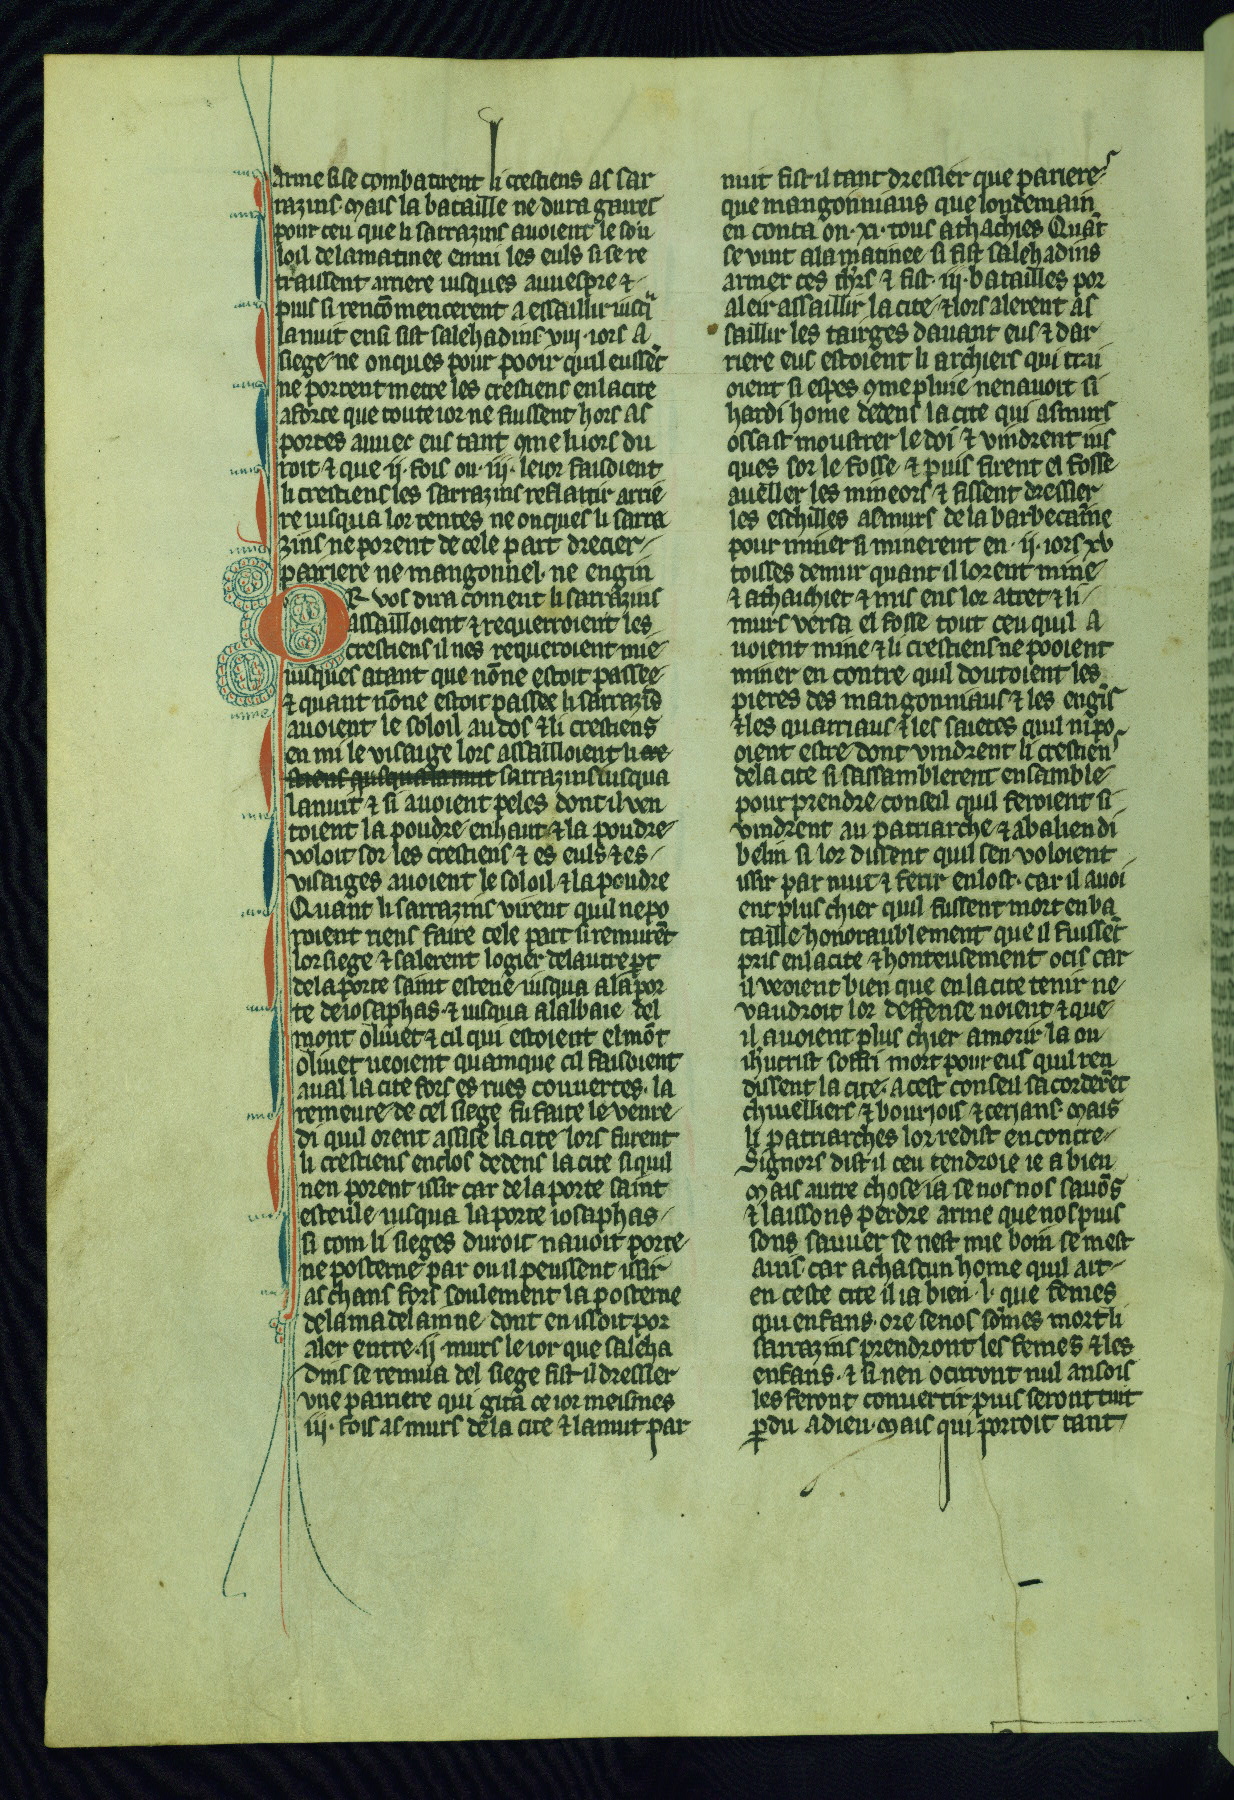 arme si se combatirent li crestiens as sar
razins. mais la bataille ne dura gaires
pour ceu que li sarrazins auoient le so u
loil de la matinee enmi les euls si se re
traissent arriere iusques auuespre &
puis si rencōmencerent a essaillir iusq̄
la nuit ensi sist salehadins viij. iors a
siege ne onques pour pooir quil eussēt
ne porrent metre les crestiens en la cite
a force que toute ior ne fussent hors as
portes auuec eus tant 9me li iors du
roit & que ij. fois ou. iij. le ior faisoient
li crestiens les sarrazins reflatir arrie
re iusqua lor tentes ne onques li sarra
zins ne porent de cele part drecier
parriere ne mangonnel. ne engin
OR vos dira coment li sarrazins
assailloient & requerroient les
crestiens il nes requeroient mie
iusques atant que nōne estoit passee
& quant nōne estoit passee li sarrazīs
auoient le soloil au dos & li crestiens
en mi le visauge lors assailloient li cre
stiens qusqua la nuit sarrazins iusqua
la nuit & si auoient peles dont il ven
toient la poudre en haut & la poudre
voloit sor les crestiens & es euls & es
visaiges auoient le soloil & la poudre
Quant li sarrazins virent quil ne po
roient riens faire cele part si remurēt
lor siege & salerent logier de lautre p̄t
de la porte saint estene iusqua a la por
te de iosaphas. & iusqua a labaie del
mont oliuet & cil qui estoient el mōt
oliuet ueoient quamque cil faisoient
aual la cite fors es rues couuertes. la
remeure de cel siege fu faite le venre
di quil orent assise la cite lors furent
li crestiens enclos dedens la cite si quil
nen porent issir car de la porte saint
esteule iusqua la porte iosaphas
si com li sieges duroit nauoit porte
ne posterne par ou il peussent issir
as chans fors soulement la posterne
de la madelainne dont en issoit por
aler entre. ij. murs le ior que saleha
dins se remua del siege fist il dressier
vne parriere qui gita ce ior meismes
iij. fois as murs de la cite & la nuit par
nuit fist il tant dressier que pariere
que mangonniaus que londemain
en conta on. xi. tous athachies Quāt
se vint a la matinee si fist salehadins
armer ces chr̄s & fist. iij. batailles por
aleir assaillir la cite & lors alerent as
saillir les tairges dauant eus & dar
riere eus estoient li archiers qui trai
oient si espes 9me pluie nen auoit si
hardi home dedens la cite qui as murs
ossast moustrer le doi & vindrent ius
ques sor le fosse & puis firent el fosse
aueller les mineors & fissent dressier
les eschilles as murs de la barbecanne
pour miner si minerent en. ij. iors xv
toisses de mur quant il lorent mine
& athaichiet & mis ens lor atret & li
murs versa el fosse tout ceu quil a
uoient mine & li crestiens ne pooient
miner en contre quil doutoient les
pieres des mangonniaus & les engīs
& les quarriaus & les saietes quil ni po
oient estre dont vindrent li crestien
de la cite si sassamblerent ensamble
pour prendre conseil quil feroient si
vindrent au patriarche & a balien di
belin si lor dissent quil sen voloient
issir par nuit & ferir en lost. car il auoi
ent plus chier quil fussent mort en ba
taille honoraublement que il fuissēt
pris en la cite & honteusement ocis car
il veoient bien que en la cite tenir ne
vaudroit lor deffense noient & que
il auoient plus chier a morir la ou
ihūcrist soffri mort pour eus quil ren
dissent la cite. a cest conseil sacorderēt
chiuelliers & bourjois & cerjans. mais
li patriarches lor redist encontre
Signors dist il ceu tendroie ie a bien
mais autre chose ia se nos nos sauōs
& laissons perdre arme que nos puis
sons sauuer se nest mie boin se mest
auis car a chascun home quil ait
en ceste cite il ia bien. l. que femes
qui enfans. ore se nos sōmes mort li
sarrazins prendront les femes & les
enfans. & si nen ocirront nul ansois
les feront conuertir puis seront tuit
p̄du a dieu. mais qui porroit tant